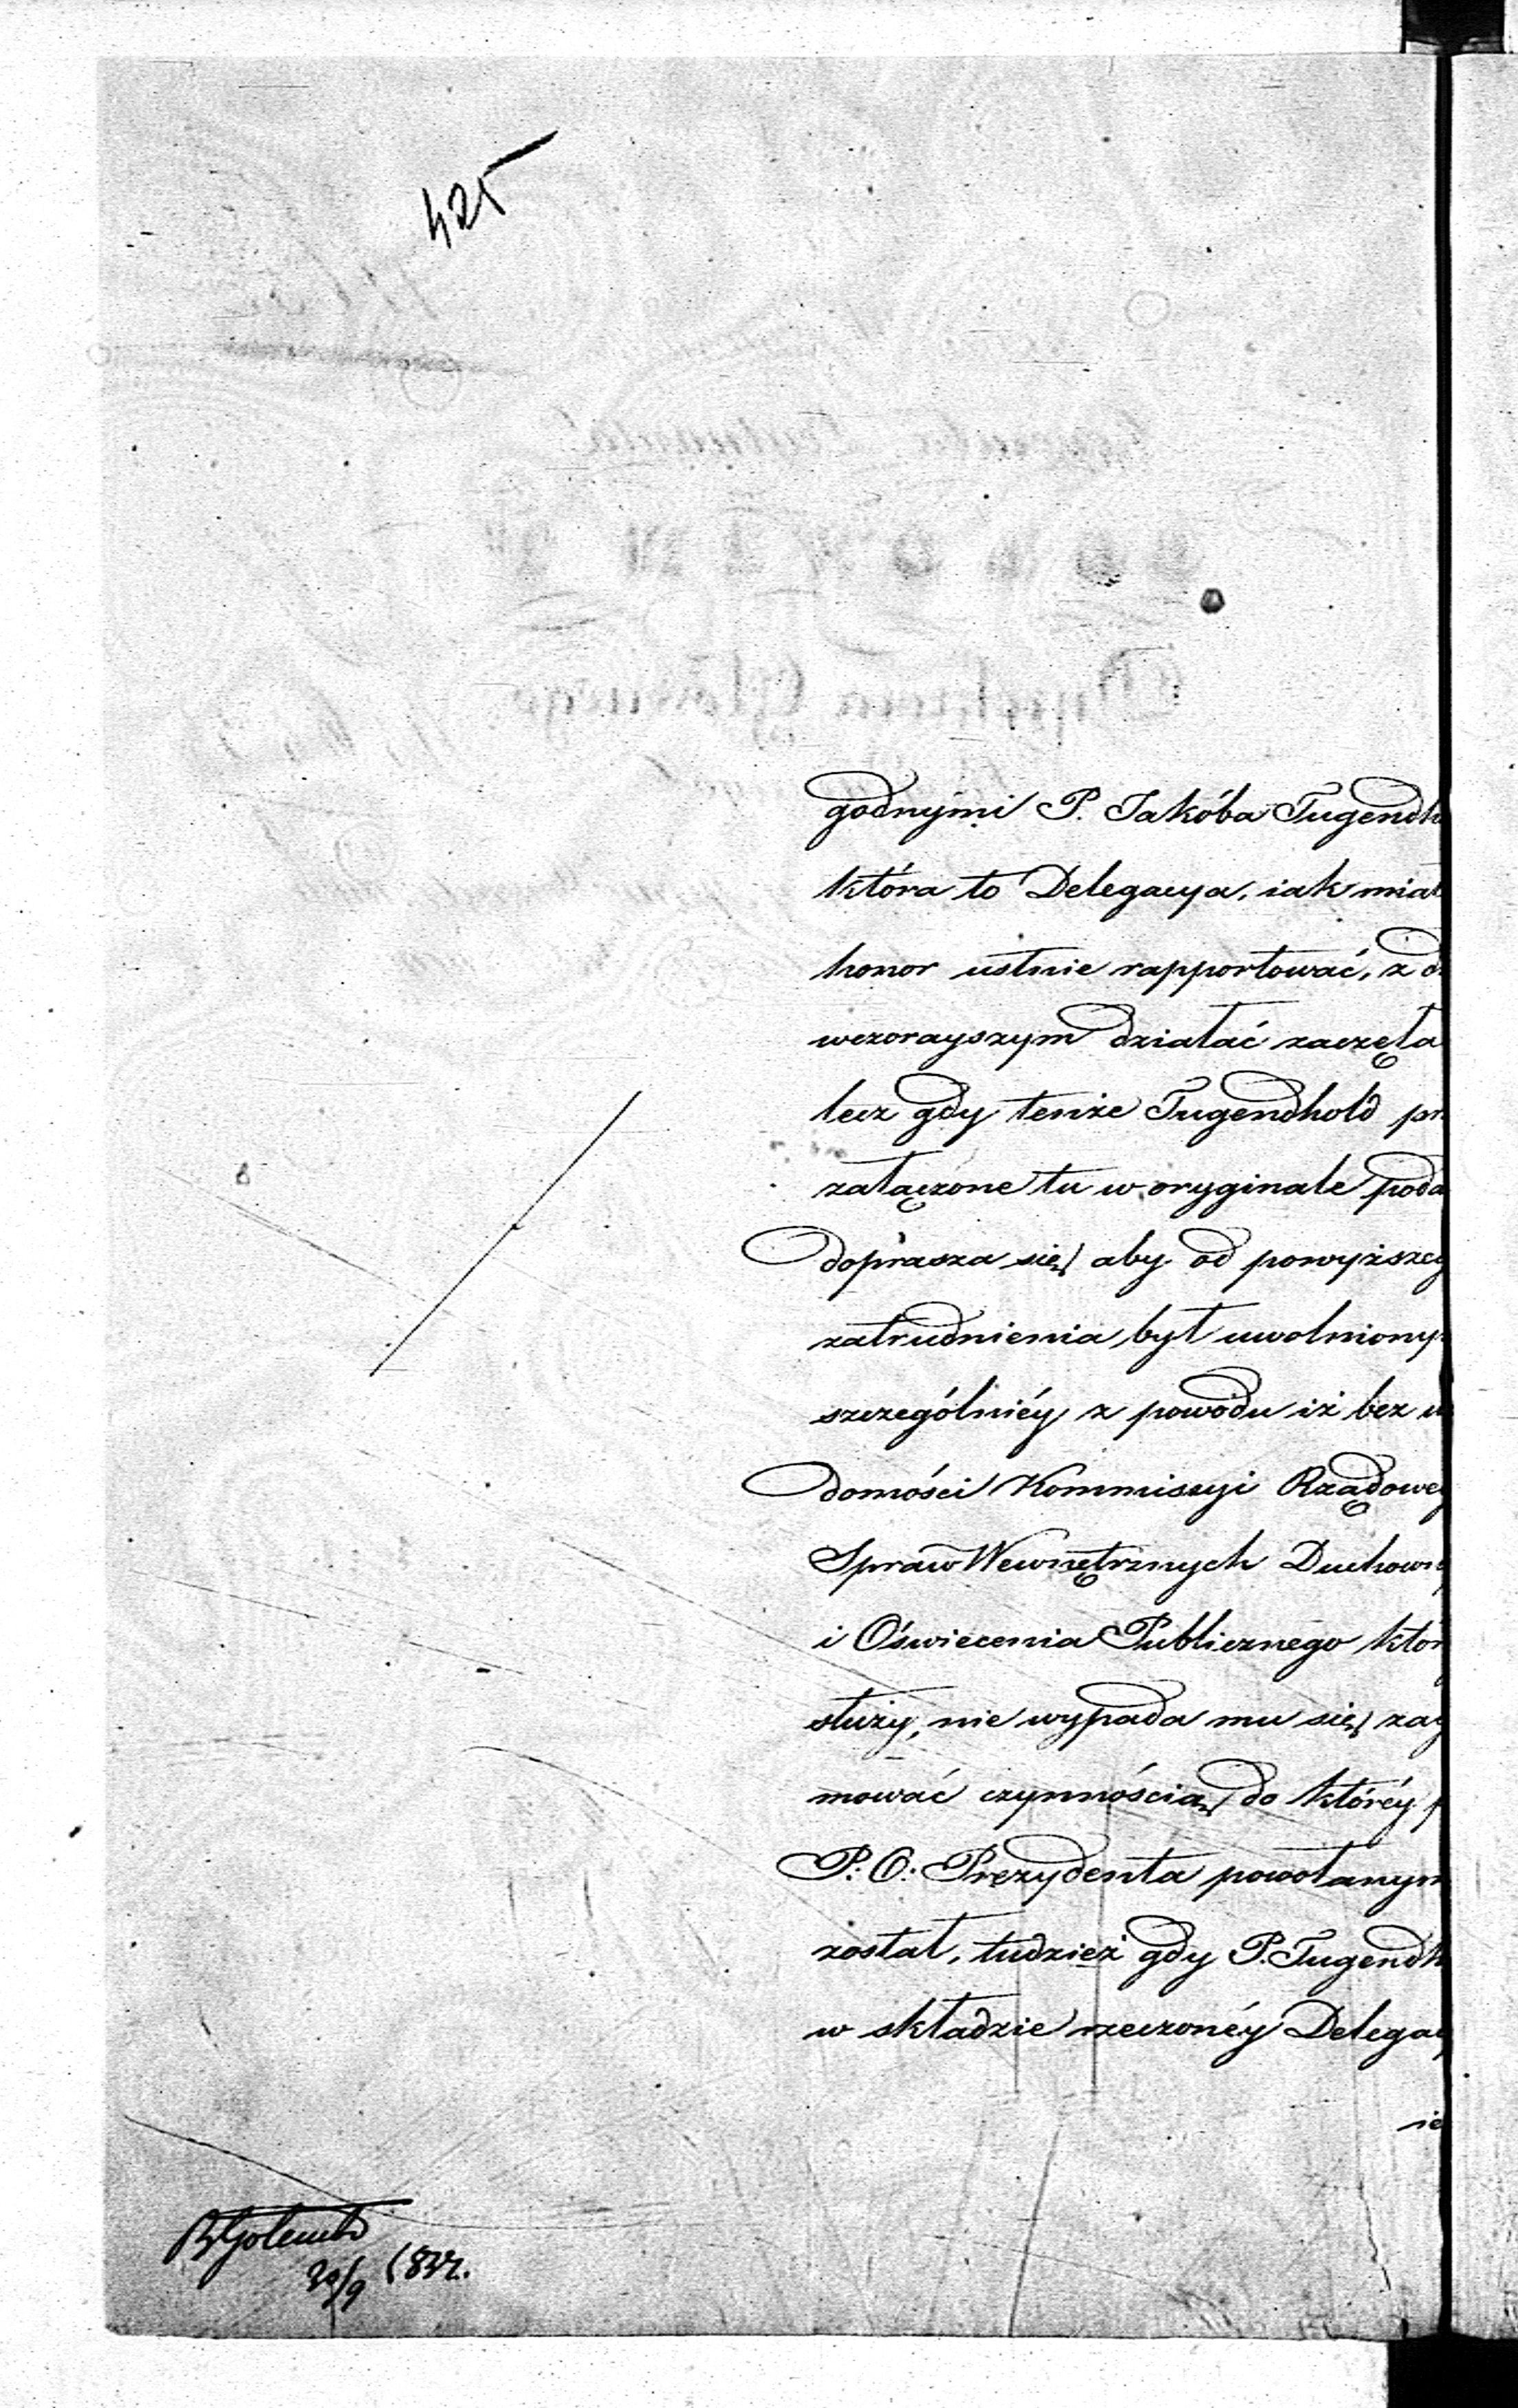 425
godnymi P. Jakóba Tugendh
która to Delegacya, iak miał
honor ustnie rapportować, z d
wczorayszym działać zaczęła
lecz gdy tenże Tugendhold pr
załączone tu w oryginale poda
doprasza się, aby od powyższeg
zatrudnienia był uwolniony
szczególniéy z powodu iż bez w
domości Kommissyi Rządowey
Spraw Wewnętrznych Duchown
i Oświecenia Publicznego któr
służy, nie wypada mu się zay
mować czynnością do któréy p
P. O. Prezydenta powołanym
został, tudzież gdy P. Tugendh
w składzie rzeczonéy Delegacy
ie
30/9